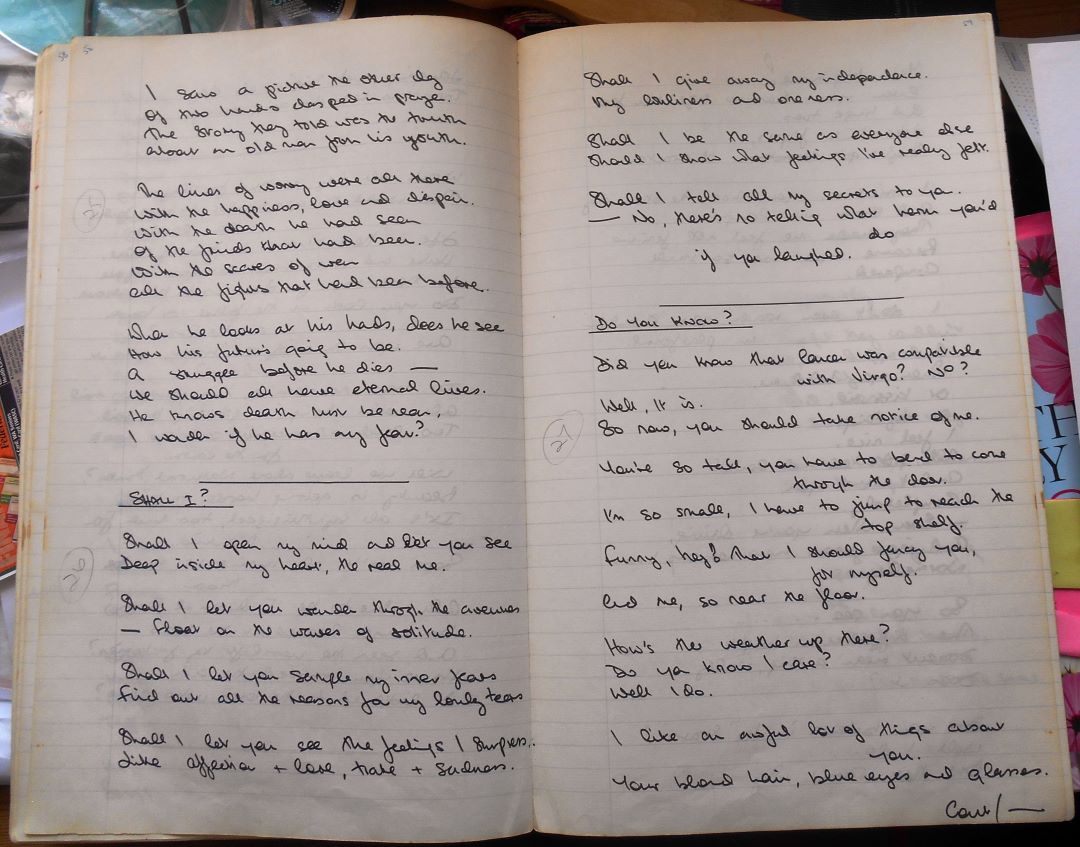 I saw a picture the other day
Of two hands clasped in praye.
The Story they told was the truth
about an old man from his youth.
The lines of worry were all there
With the happiness, love and despair.
With the death he had seen
Of the friends that had been.
With the scares of war
all the fights that had been before.
When he looks at his hands, does he see
How his future's going to be.
A struggle before he dies —
We should all have eternal lives.
He knows death must be near,
I wonder if he has any fear?
SHALL I?
Shall I open my mind and let you see
Deep inside my heart, the real me.
Shall I let you wander through the avenues
— float on the waves of solitude.
Shall I let you sample my inner fears
find out all the reasons for my lonely tears
Shall I let you see the feelings I surpress..
Like affection + love, hate + sadness.
Shall I give away my independence.
My lonliness and oneness.
Shall I be the same as everyone else
Should I show what feelings I've really felt.
Shall I tell all my secrets to you.
— No, there's no telling what harm you'd
do
if you laughed.
Do You Know?
Did you know that Cancer was compatible
with Virgo? No?
Well, It is.
So now, you should take notice of me.
You're so tall, you have to bend to come
through the door.
I'm so small, I have to jump to reach the
top shelf.
Funny, hey? that I should fancy you,
for myself.
And me, so near the floor.
How's the weather up there?
Do you know I care?
Well I do.
I like an awful lot of things about
you.
Your blond hair, blue eyes and glasses.
Cont/—